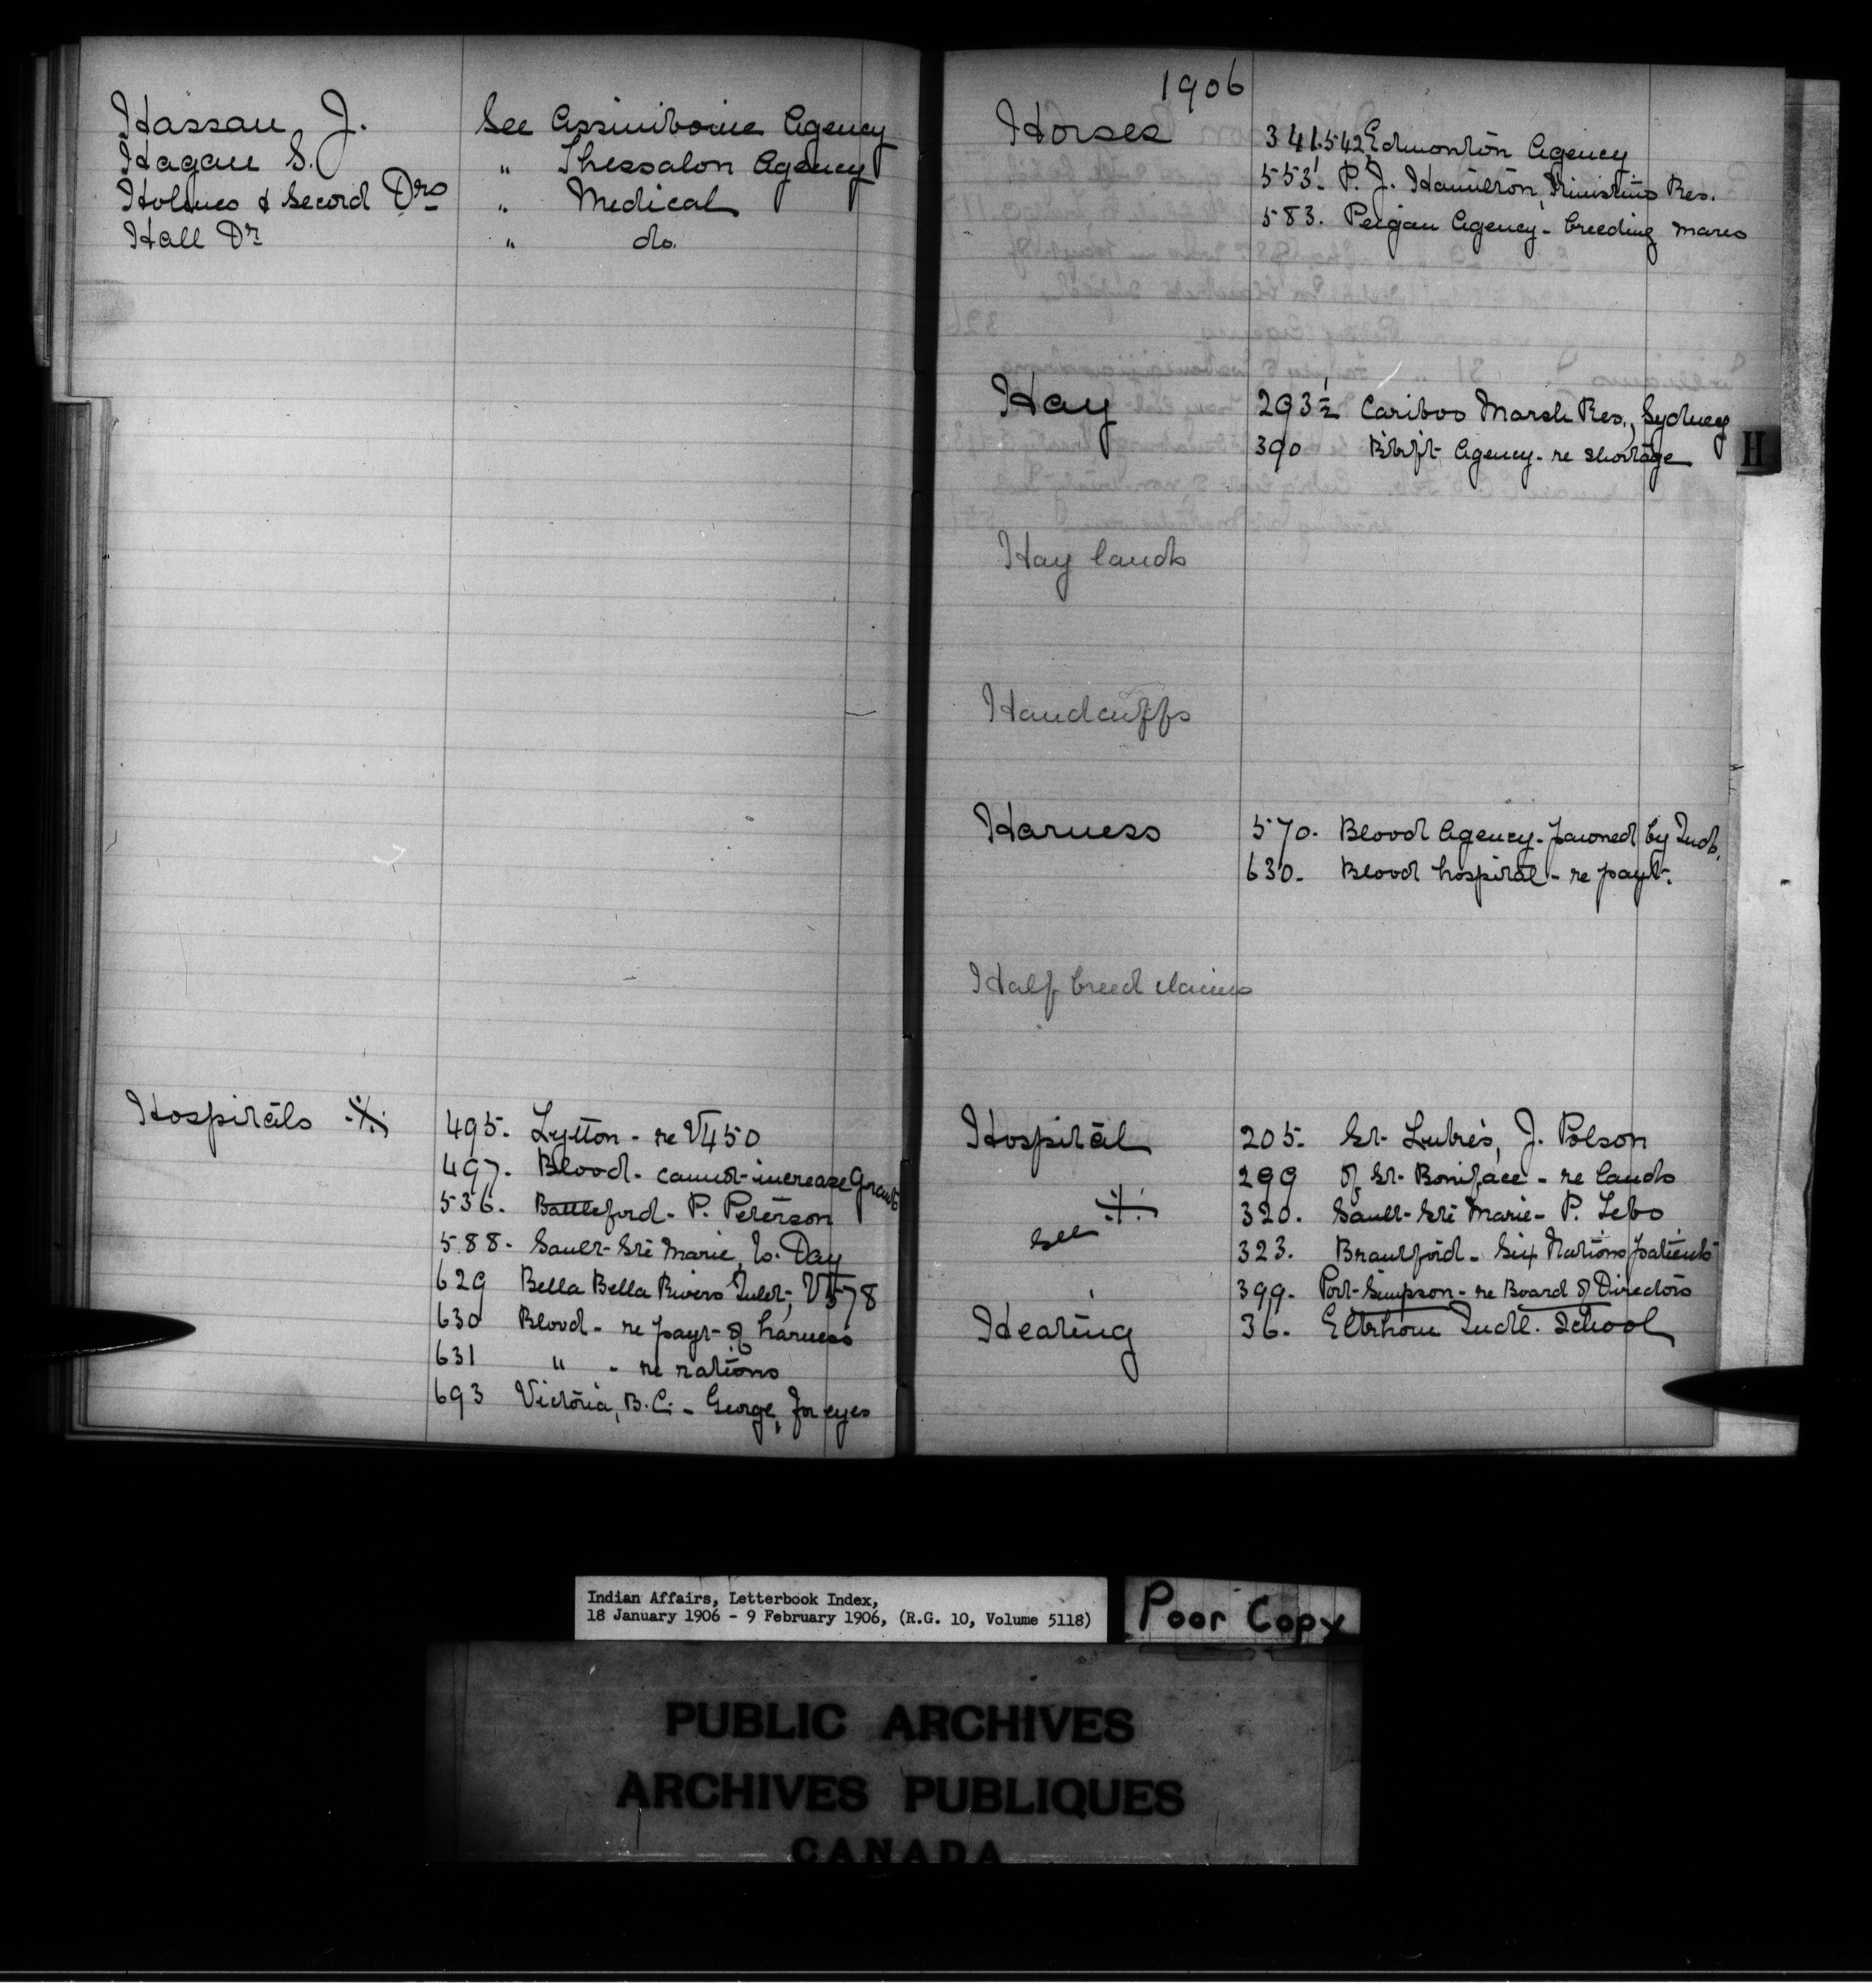 Hassan, J. See Assiniboine Agency
Hagan S. " Thessalon Agency
Holmes & Secord Drs " Medical
Hall Dr " do.
Hospitals ※
495. Lytton - re V450
497. Blood - cannot increase Grants
536. Battleford - P. Peterson
588. Sault Ste Marie, W. Day
629 Bella Bella Rivers Inlet, V578
630 Blood - re payt of harness
631 " - re rations
693 Victoria, B.C. - George, for eyes
1906
Horses 341.542 Edmonton Agency
553. P. J. Hamilton, Res.
583. Peigan Agency - breeding mares
Hay 293½ Cariboo Marsh Res., Sydney
390 Agency - re shortage
H
Hay lands
Handcuffs
Harness 570. Blood Agency - pawned by Inds.
630. Blood hospital - re payt.
Half breed claims
Hospital 205. St. Luke's, J. Polson
299 of St. Boniface - re lands
320. Sault Ste Marie - P. Lebo
see ※
323. Brantford - Six Nations patients
399. Port Simpson - re Board of Directors
Heating 36. Elkhorn Indl. School
Indian Affairs, Letterbook Index,
18 January 1906 - 9 February 1906, (R.G. 10, Volume 5118)
Poor Copy
PUBLIC ARCHIVES
ARCHIVES PUBLIQUES
CANADA